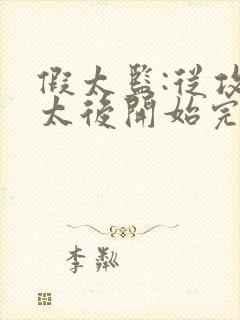 假太監:從攻
太後開始完
李粼